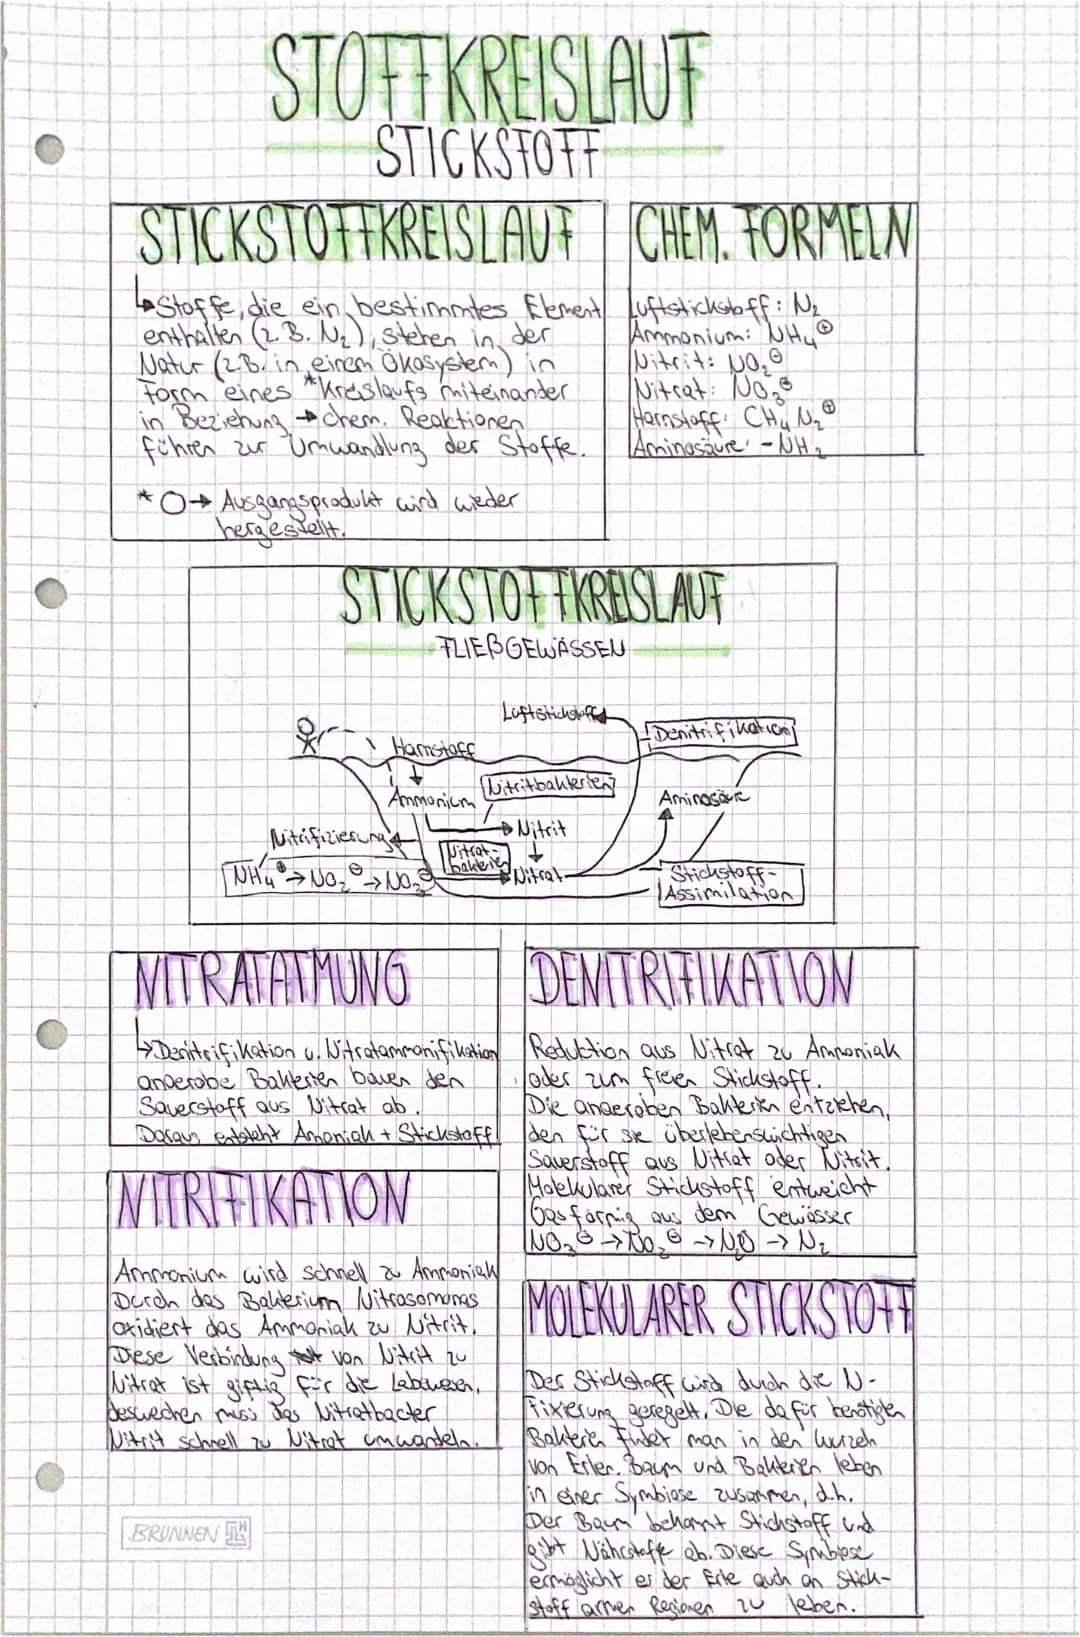 STOFFKREISLAUF
STICKSTOFF
STICKSTOFFKREISLAUF
↳ Stoffe, die ein bestimmtes Element
enthalten (z.B. N₂), stehen in der
Natur (z.B. in einem Ökosystem) in
Form eines *Kreislaufs miteinander
in Beziehung → chem. Reaktionen
führen zur Umwandlung der Stoffe.
* O→ Ausgangsprodukt wird wieder
hergestellt.
CHEM. FORMELN
Luftstickstoff: N₂
Ammonium: NH₄⊕
Nitrit: NO₂⊖
Nitrat: NO₃⊖
Harnstoff: CH₄N₂⊕
Aminosäure: -NH₂
STICKSTOFFKREISLAUF
FLIEßGEWÄSSEN
Luftstickstoff
Denitrifikation
Harnstoff
Ammonium
Nitritbakterien
Aminosäure
Nitrit
Nitrifizierung
Nitrat-
bakterien
Nitrat
NH₄⊕ → NO₂⊖ → NO₃⊖
Stickstoff-
Assimilation
NITRATATMUNG
↳ Denitrifikation u. Nitratammonifikation
anaerobe Bakterien bauen den
Sauerstoff aus Nitrat ab.
Daraus entsteht Amoniak + Stickstoff
NITRIFIKATION
Ammonium wird schnell zu Ammoniak
Durch das Bakterium Nitrosomonas
oxidiert das Ammoniak zu Nitrit.
Diese Verbindung von Nitrit zu
Nitrat ist giftig für die Lebewesen,
deswechen muss das Nitratbacter
Nitrit schnell zu Nitrat umwandeln.
DENITRIFIKATION
Reduktion aus Nitrat zu Ammoniak
oder zum freien Stickstoff.
Die anaeroben Bakterien entziehen,
den für sie überlebenswichtigen
Sauerstoff aus Nitrat oder Nitrit.
Molekularer Stickstoff entweicht
Gasförmig aus dem Gewässer
NO₃⊖ → NO₂⊖ → N₂O → N₂
MOLEKULARER STICKSTOFF
Der Stickstoff wird durch die N-
Fixierung geregelt. Die dafür benötigten
Bakterien findet man in den Wurzeln
von Erlen. Baum und Bakterien leben
in einer Symbiose zusammen, d.h.
Der Baum bekommt Stickstoff und
gibt Nährstoffe ab. Diese Symbiose
ermöglicht es der Erle auch an Stick-
stoff armen Regionen zu leben.
BRUNNEN